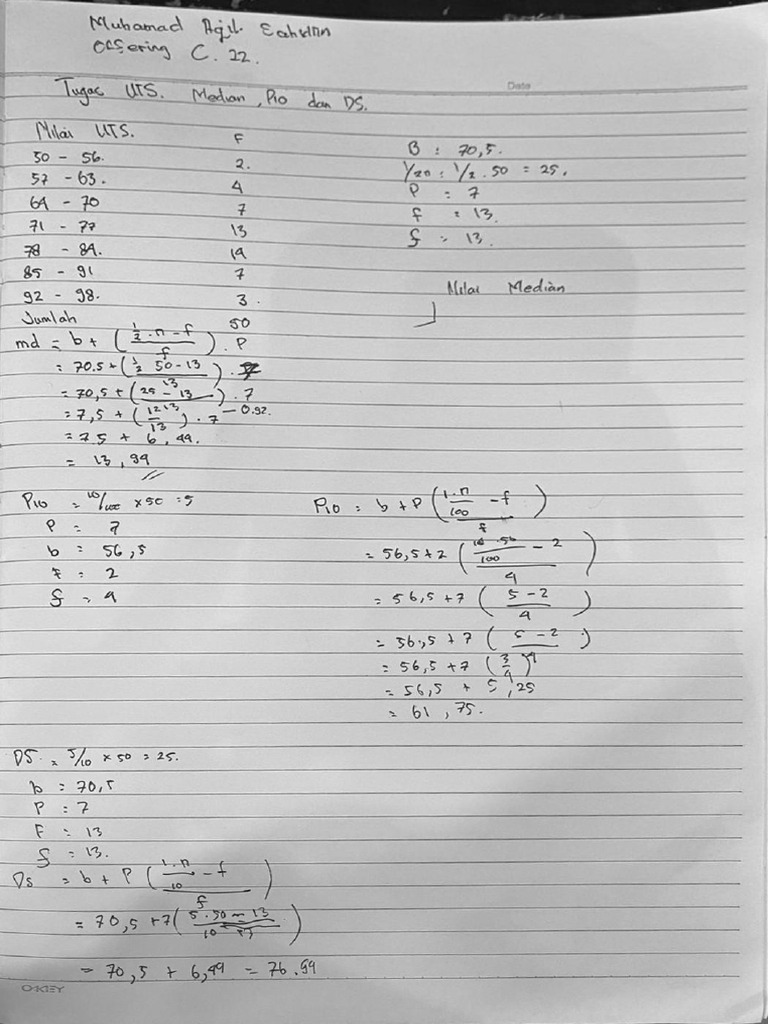 Muhamad Aqil Sahidin
Offering C. 22.
Date
Tugas UTS. Median, P10 dan D5.
Nilai UTS. F
50 - 56. 2.
57 - 63. 4
64 - 70 7
71 - 77 13
78 - 84. 14
85 - 91 7
92 - 98. 3.
Jumlah 50
B : 70,5.
1/2n : 1/2 . 50 = 25.
P = 7
f = 13.
f = 13.
Nilai Median
md = b + ( (1/2 . n - f) / f ) . P
= 70.5 + ( (1/2 50 - 13) / 13 ) . 7
= 70,5 + ( (25 - 13) / 13 ) . 7
= 7,5 + ( 12/13 ) . 7 — 0.92.
= 7,5 + 6,49.
= 13,99
P10 = 10/100 x 50 = 5
P = 7
b = 56,5
F = 2
f = 4
P10 = b + P ( (1.n/100 - f) / f )
= 56,5 + 7 ( (10 . 50/100 - 2) / 4 )
= 56,5 + 7 ( (5 - 2) / 4 )
= 56,5 + 7 ( (5 - 2) / 4 )
= 56,5 + 7 ( 3/4 )
= 56,5 + 5,25
= 61,75.
D5 = 5/10 x 50 = 25.
b = 70,5
P = 7
F = 13
f = 13.
D5 = b + P ( (1.n/10 - f) / f )
= 70,5 + 7 ( (5.50 - 13) / (10 13) )
= 70,5 + 6,49 = 76.99